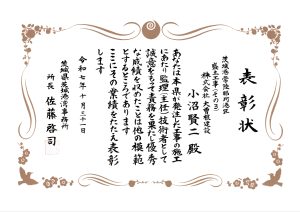 表彰状
茨城港常陸那珂港区
盛土工事(その3)
株式会社大曽根建設
小沼賢二 殿
あなたは本県が発注した工事の施工
にあたり監理(主任)技術者として
誠意をもって責務を果たし優秀
な成績を収めたことは他の模範
とするところであります
ここにその業績をたたえ表彰
します
令和七年十月三十一日
茨城県茨城港湾事務所
所長 佐藤啓司